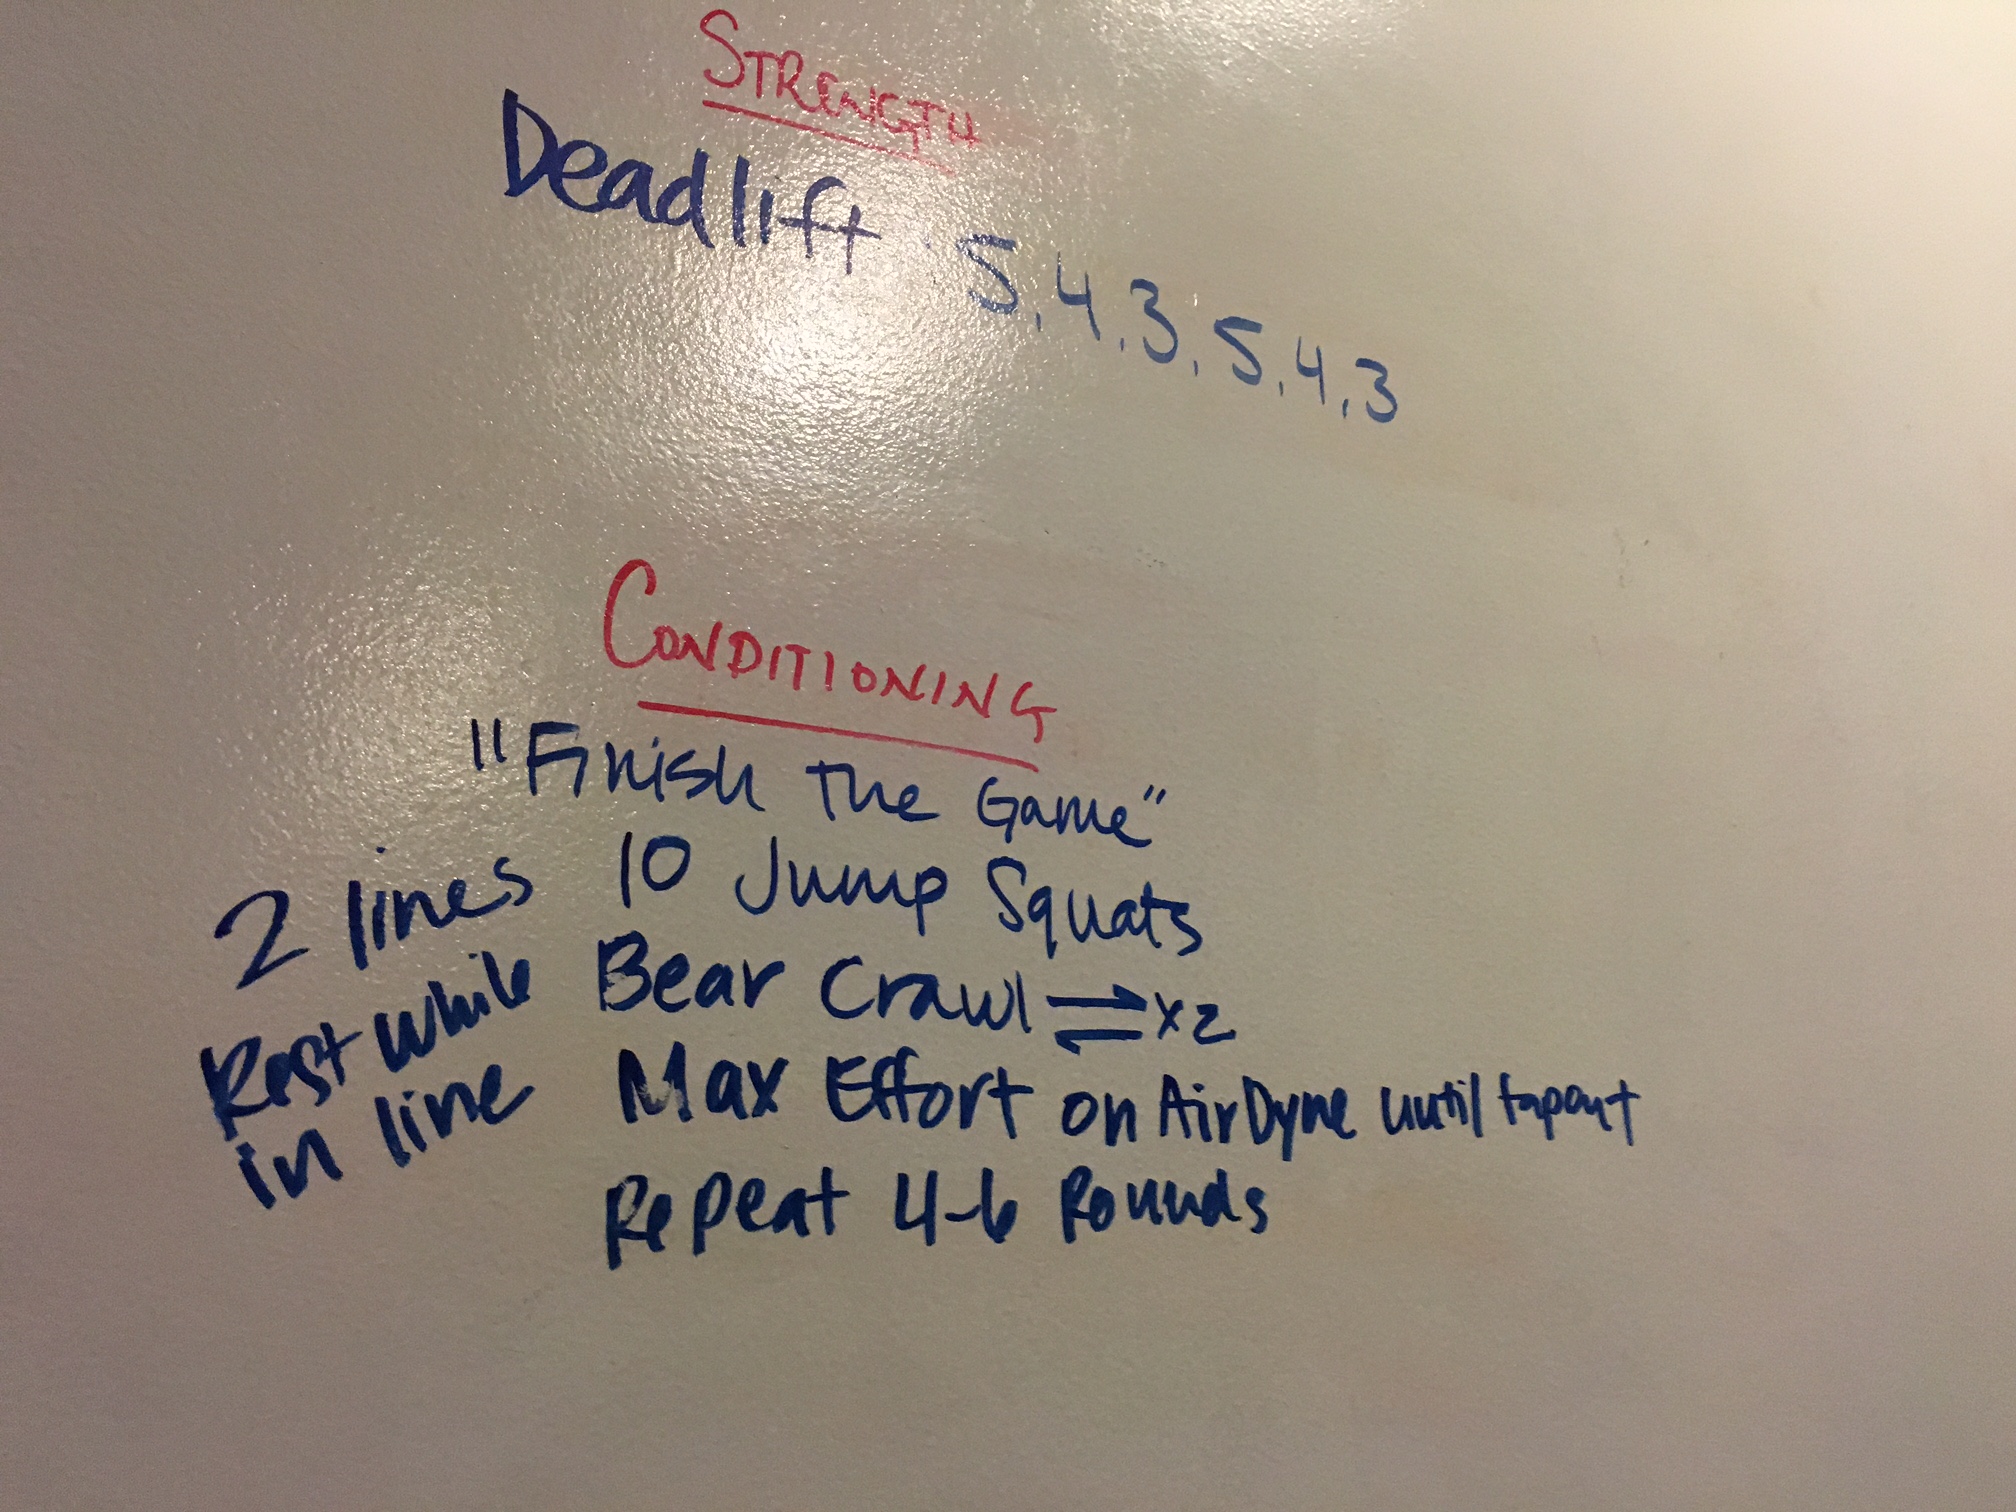 STRENGTH
Deadlift 5,4,3,5,4,3
CONDITIONING
"Finish the Game"
2 lines
Rest while
in line
10 Jump Squats
Bear Crawl ⇌ x2
Max Effort on AirDyne until tapout
Repeat 4-6 Rounds